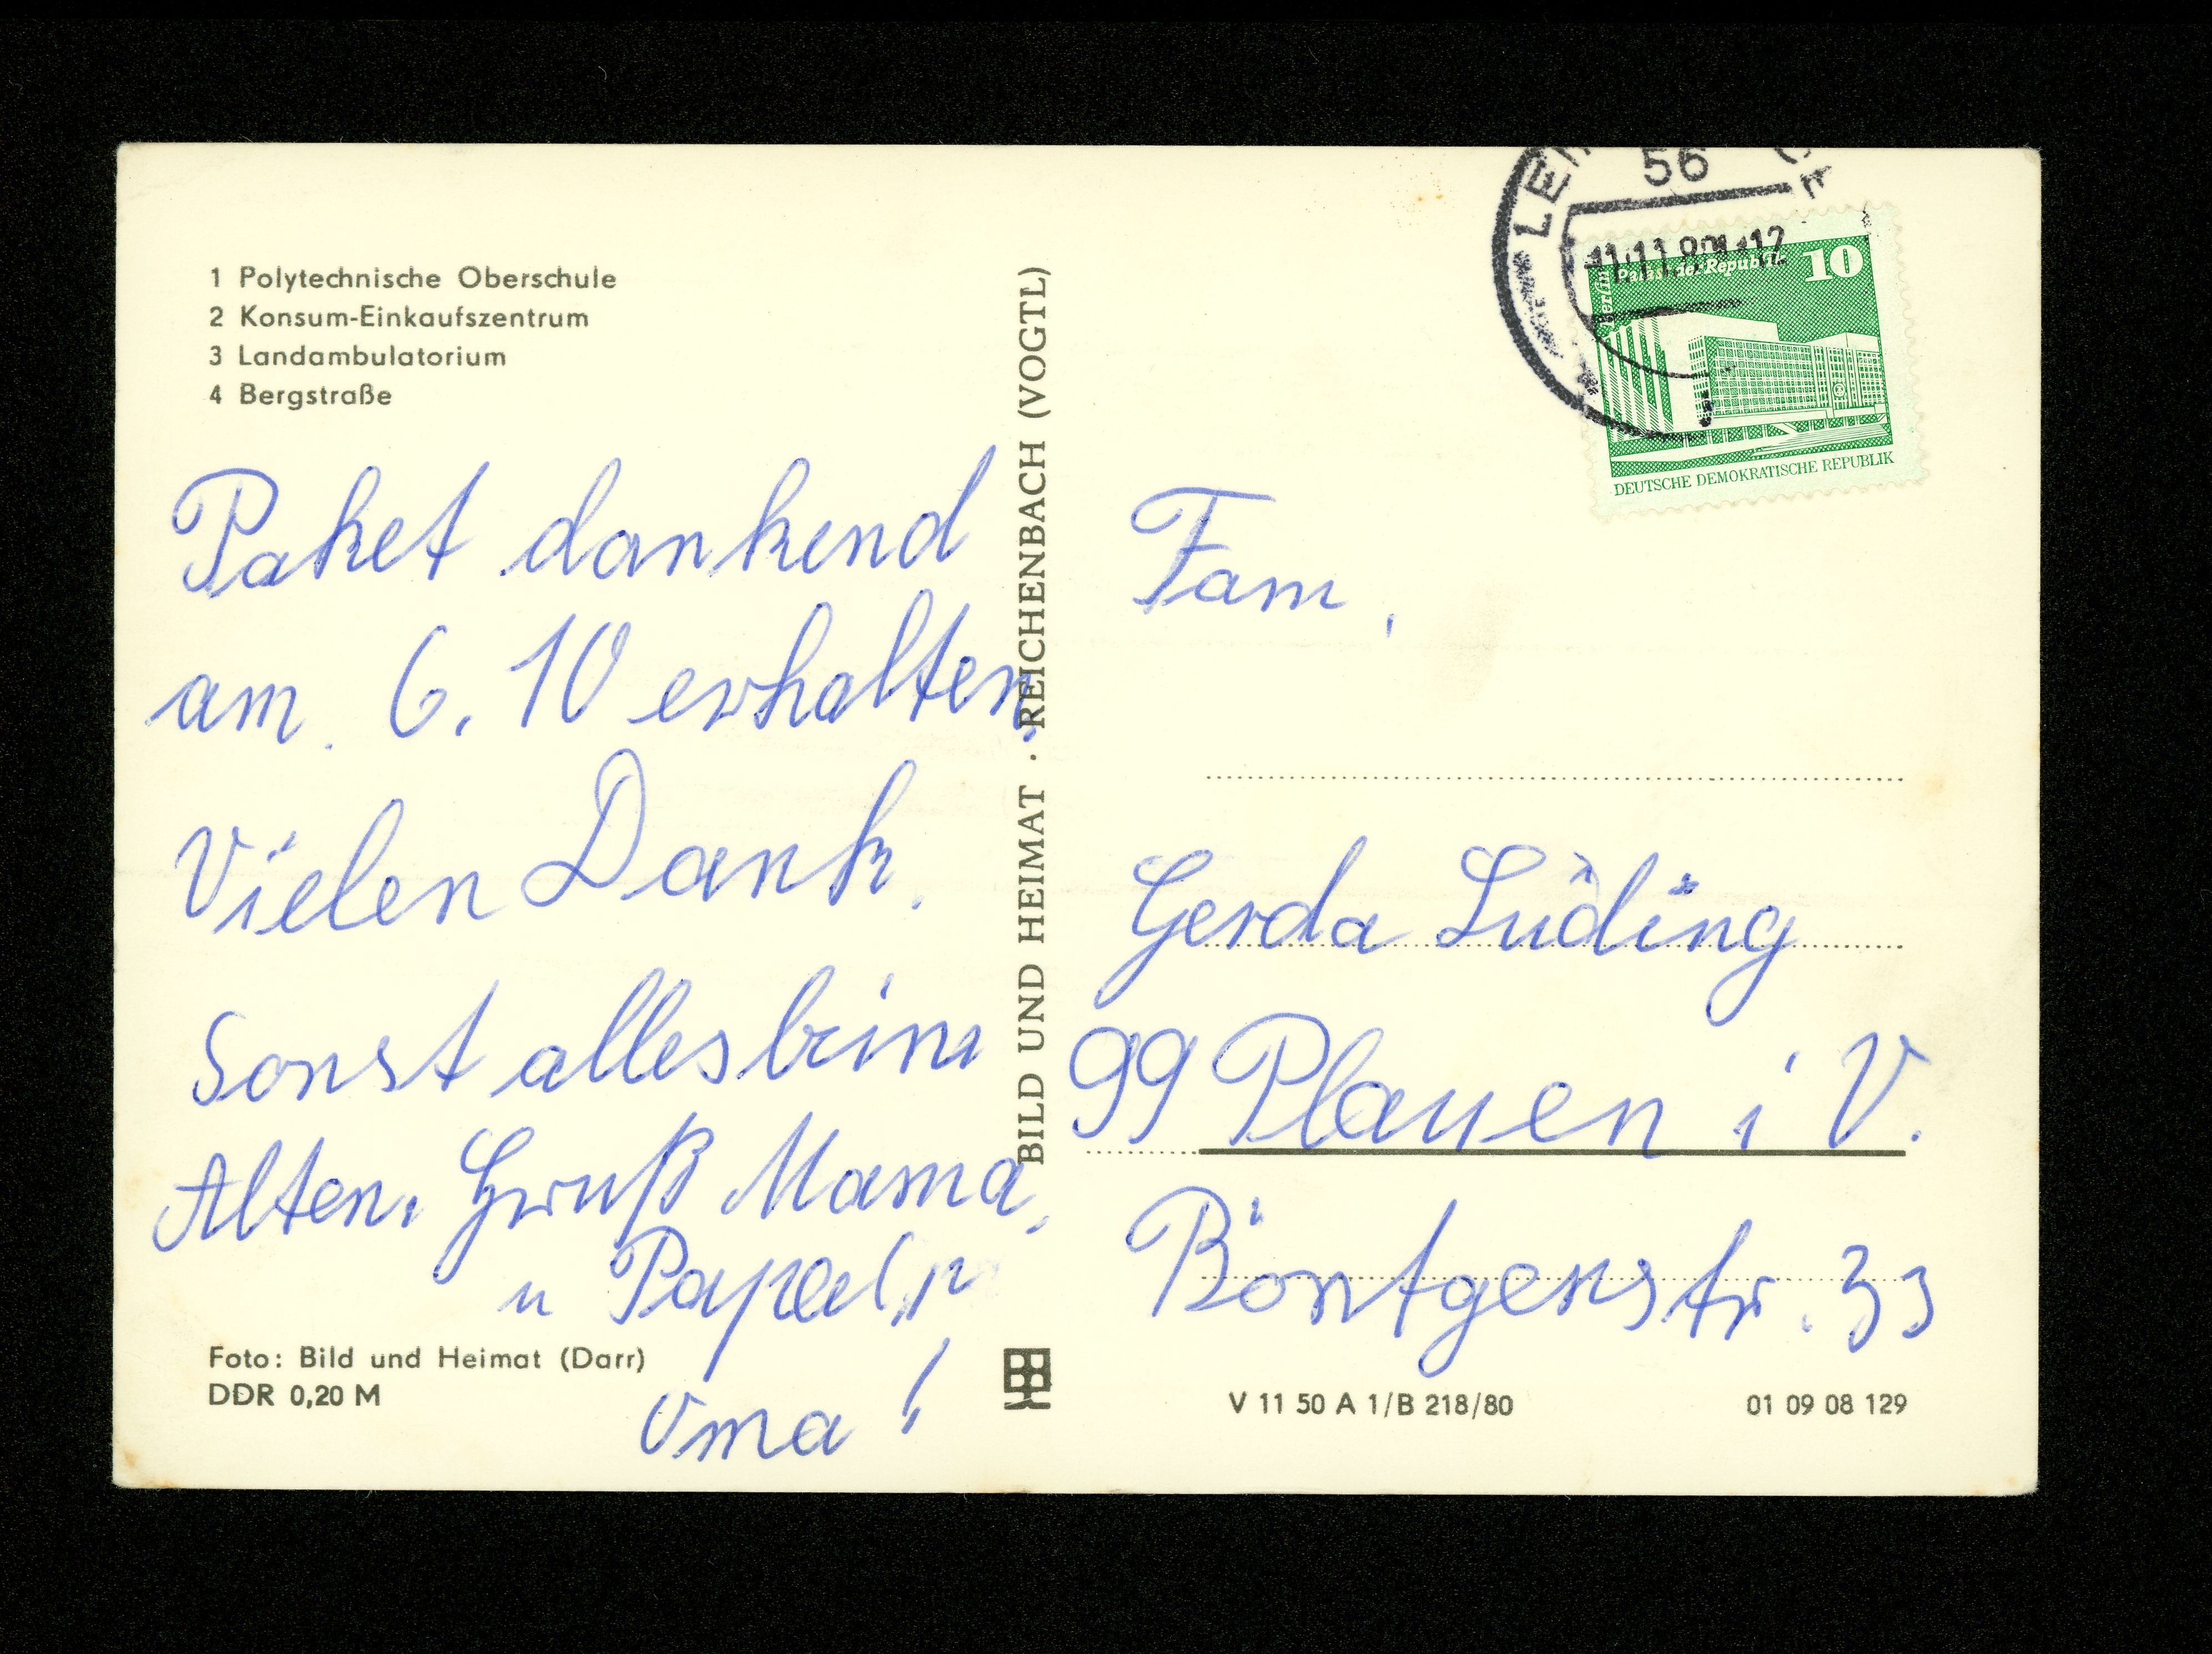 1 Polytechnische Oberschule
2 Konsum-Einkaufszentrum
3 Landambulatorium
4 Bergstraße
Paket dankend
am. 6. 10 erhalten.
Vielen Dank.
Sonst alles beim
Alten. Gruß Mama,
u Papa
Oma!
Foto: Bild und Heimat (Darr)
DDR 0,20 M
BILD UND HEIMAT · REICHENBACH (VOGTL)
56
Berlin Palast der Republik 10
DEUTSCHE DEMOKRATISCHE REPUBLIK
Fam.
Gerda Lüding
99 Plauen i V.
Röntgenstr. 33
V 11 50 A 1/B 218/80
01 09 08 129